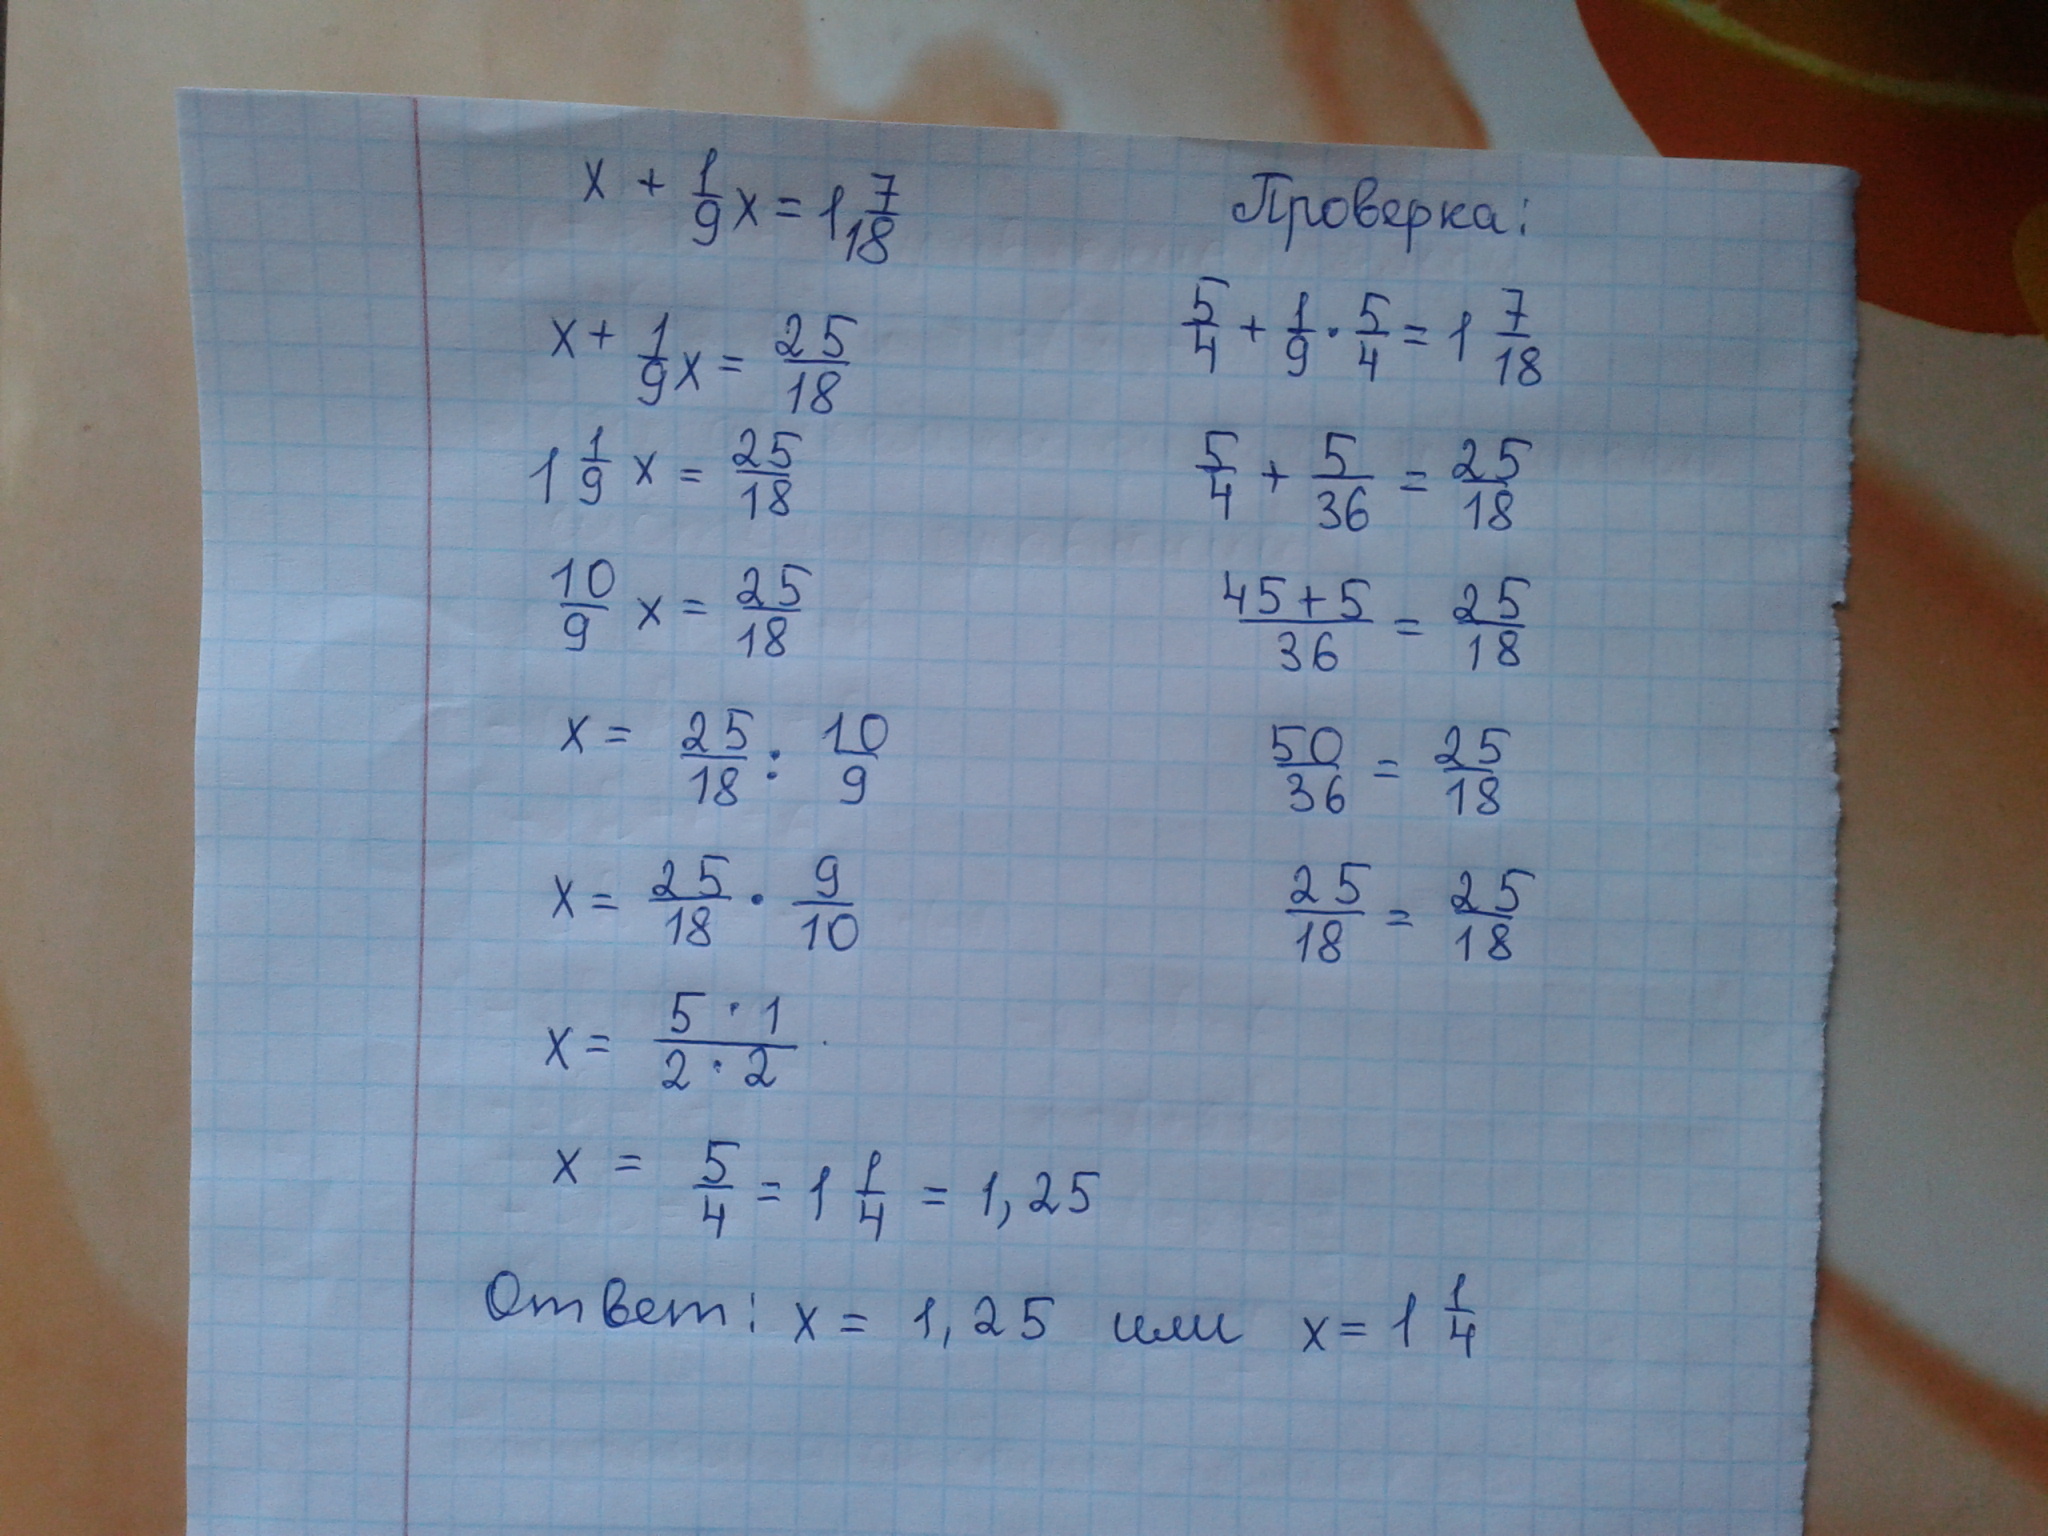 x + 1/9 x = 1 7/18
x + 1/9 x = 25/18
1 1/9 x = 25/18
10/9 x = 25/18
x = 25/18 : 10/9
x = 25/18 · 9/10
x = 5 · 1 / 2 · 2
x = 5/4 = 1 1/4 = 1,25
Ответ: x = 1,25 или x = 1 1/4
Проверка:
5/4 + 1/9 · 5/4 = 1 7/18
5/4 + 5/36 = 25/18
45 + 5 / 36 = 25/18
50/36 = 25/18
25/18 = 25/18